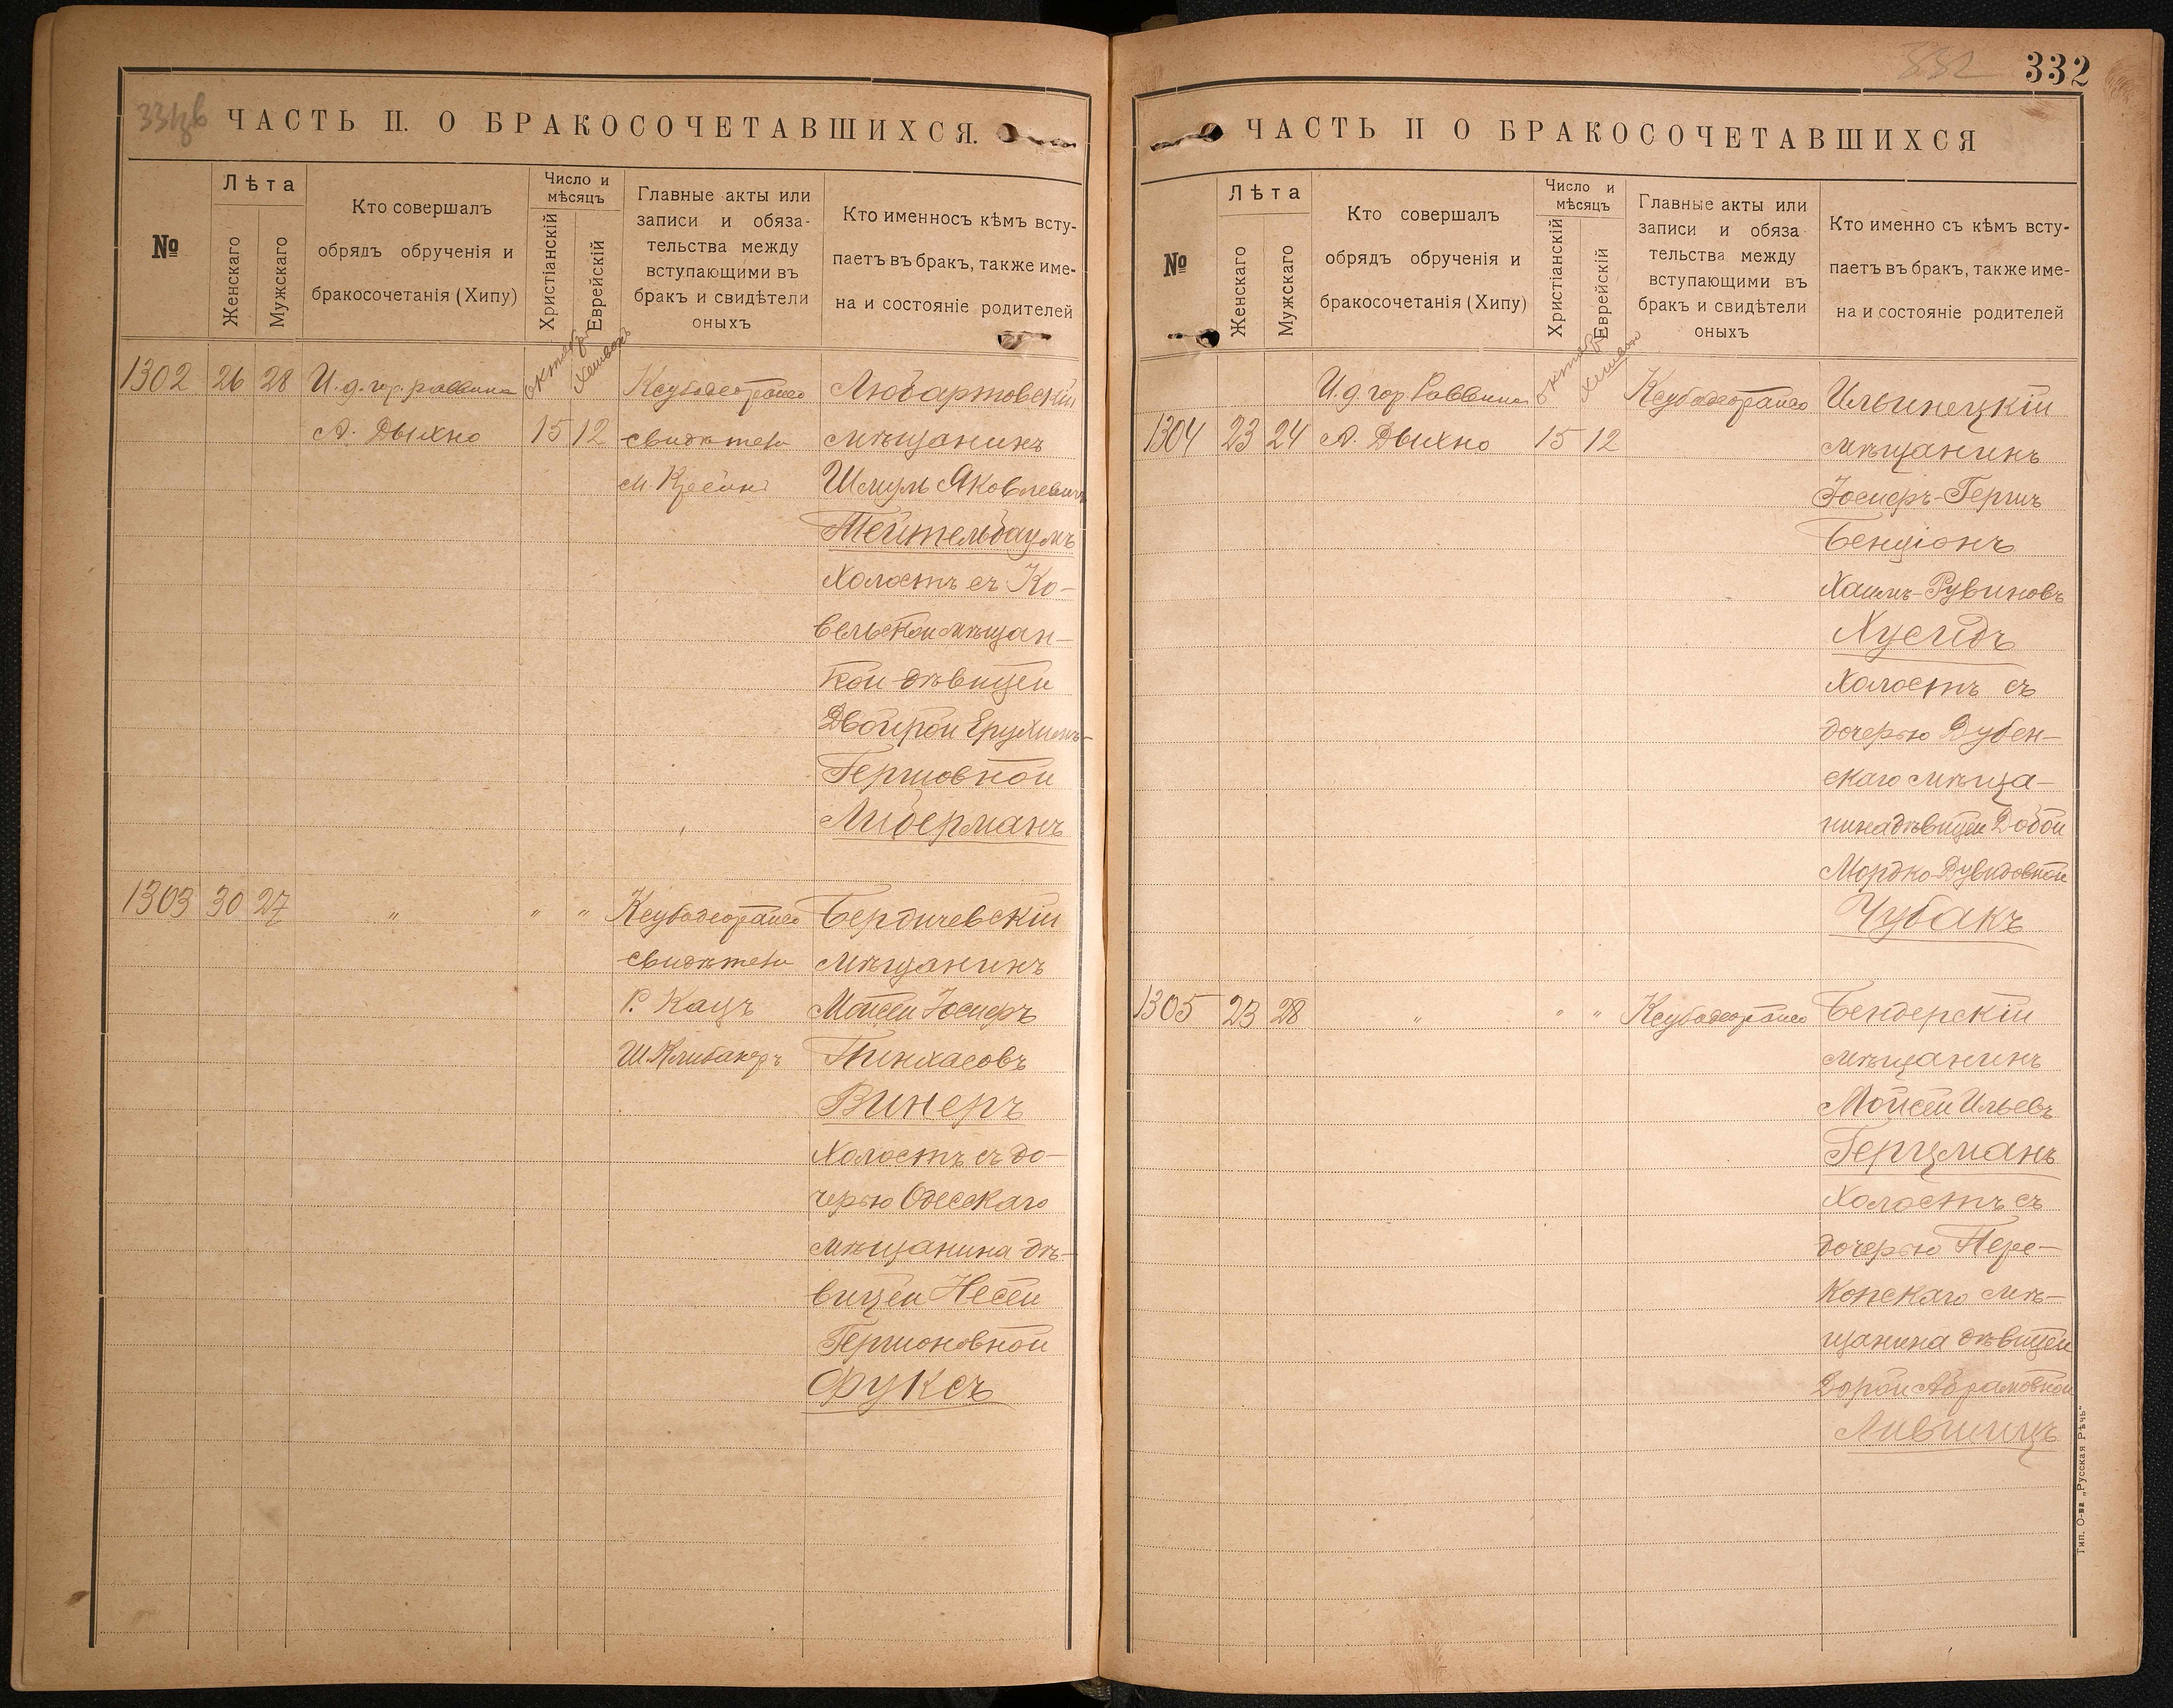 331 об
ЧАСТЬ II. О БРАКОСОЧЕТАВШИХСЯ.
№
Лѣта
Женскаго
Мужскаго
Кто совершалъ
обрядъ обрученія и
бракосочетанія (Хипу)
Число и
мѣсяцъ
Христіанскій
Еврейскій
Главные акты или
записи и обяза-
тельства между
вступающими въ
бракъ и свидѣтели
оныхъ
Кто именносъ кѣмъ всту-
паетъ въ бракъ, также име-
на и состояніе родителей
1302 26 28 И.д.гор.раввина Октябр Хешванъ Любартовскій
А. Дыхно 15 12 свидѣтели мѣщанинъ
Шмуль Яковлевичъ
Тейтельбаумъ
Холостъ съ Ко-
вельской мѣщан-
кой дѣвицей
Двойрой Ерухимъ-
Гершовной
Либерманъ
1303 30 27 " " " Бердичевскій
свидѣтели мѣщанинъ
Р. Кацъ Мойсей Іосифъ
Пинхасовъ
Винеръ
Холостъ съ до-
черью Одесскаго
мѣщанина дѣ-
вицей Несей
Гершоновной
Фуксъ
332
332
ЧАСТЬ II О БРАКОСОЧЕТАВШИХСЯ
№
Лѣта
Женскаго
Мужскаго
Кто совершалъ
обрядъ обрученія и
бракосочетанія (Хипу)
Число и
мѣсяцъ
Христіанскій
Еврейскій
Главные акты или
записи и обяза
тельства между
вступающими въ
бракъ и свидѣтели
оныхъ
Кто именно съ кѣмъ всту-
паетъ въ бракъ, также име-
на и состояніе родителей
И.д. гор. Раввина Октябр Хешван Ильинецкій
1304 23 24 А. Дыхно 15 12 мѣщанинъ
Іосифъ-Гершъ
Бенціонъ
Хаимъ-Рувиновъ
Хусидъ
Холостъ съ
дочерью Дубен-
скаго мѣща-
нина дѣвицей Добой
Мордко-Дувидовной
Чубакъ
1305 23 28 " " " Бендерскій
мѣщанинъ
Мойсей Ильевъ
Герцманъ
Холостъ съ
дочерью Пере-
копскаго мѣ-
щанина дѣвицей
Дорой Абрамовной
Лившицъ
Тип. О-ва „Русская Рѣчь"